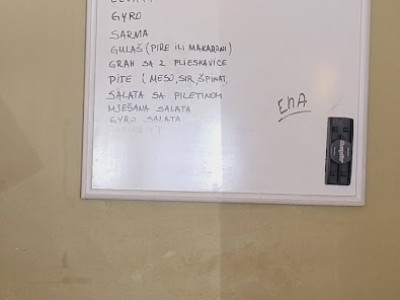 GYRO
SARMA
GULAŠ (PIRE ILI MAKARONI)
GRAH SA 2 PLJESKAVICE
PITE (MESO, SIR, ŠPINAT,
SALATA SA PILETINOM
MJEŠANA SALATA
GYRO SALATA
ENA